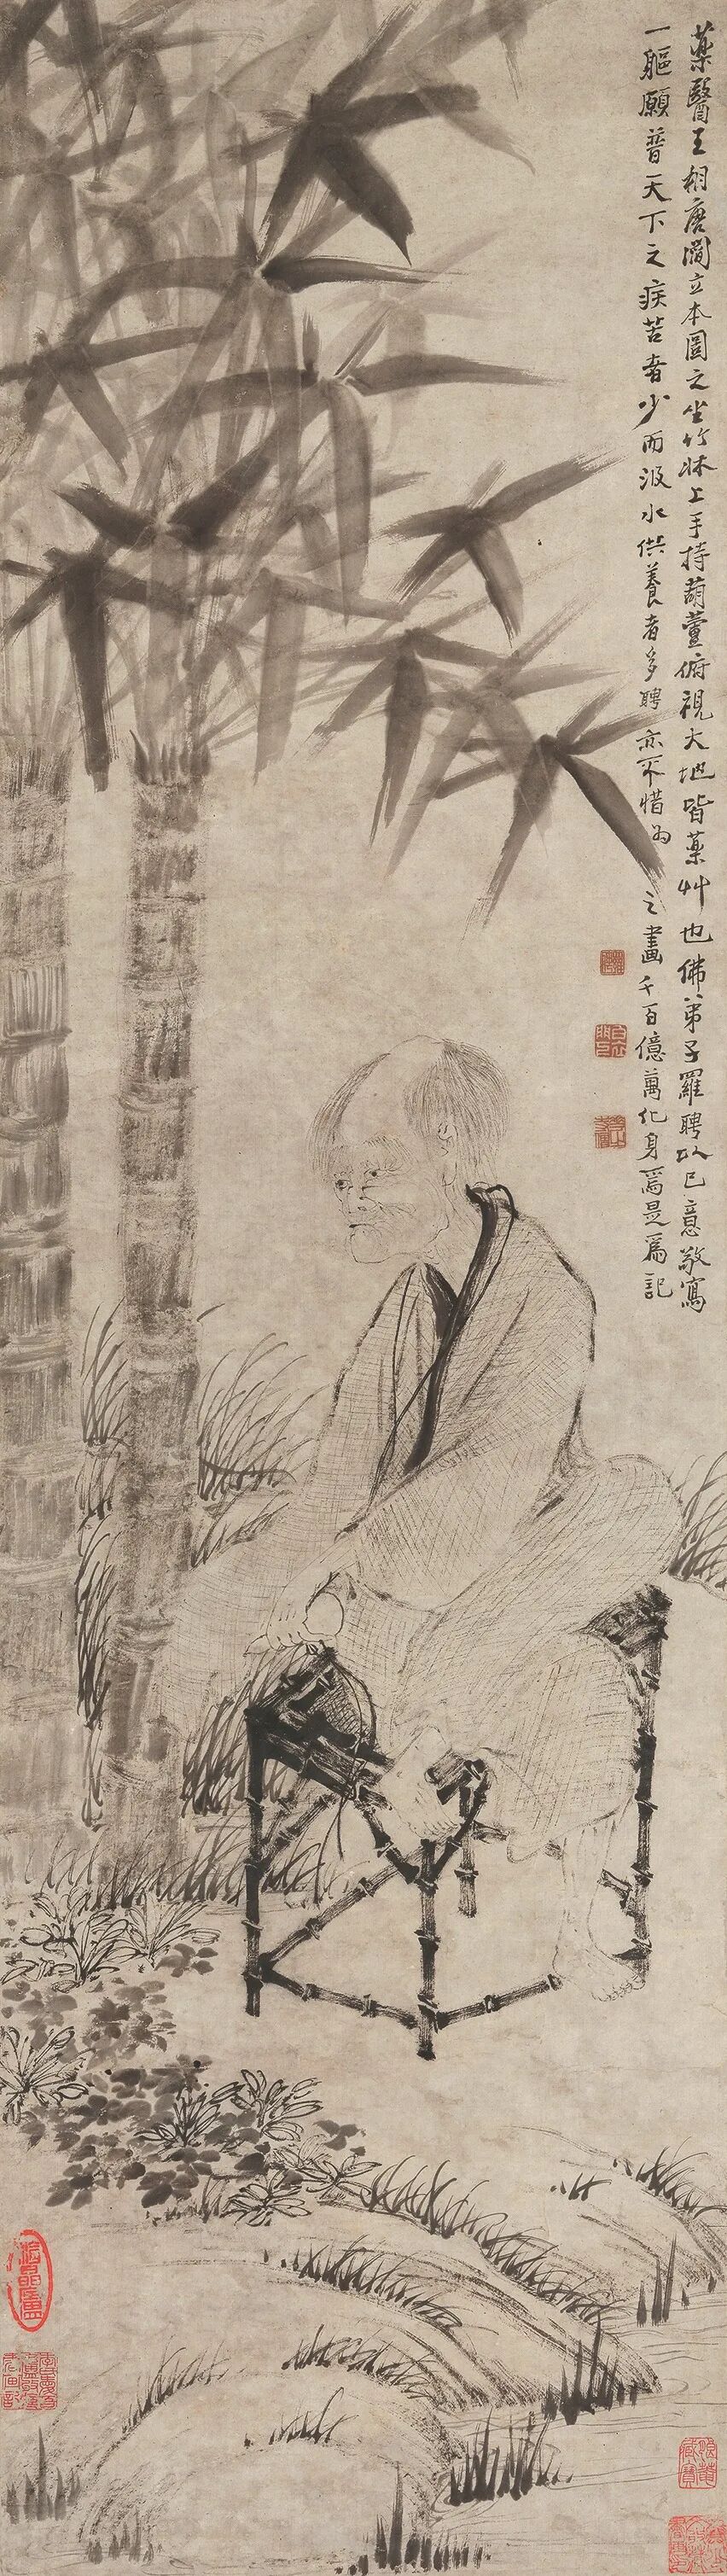 藥醫王相唐閻立本圖之坐竹牀上手持葫蘆俯視大地皆藥艸也佛弟子羅聘以己意敬寫
一軀願普天下之疾苦者少而汲水供養者多聘亦不惜為之畫千百億萬化身焉是為記